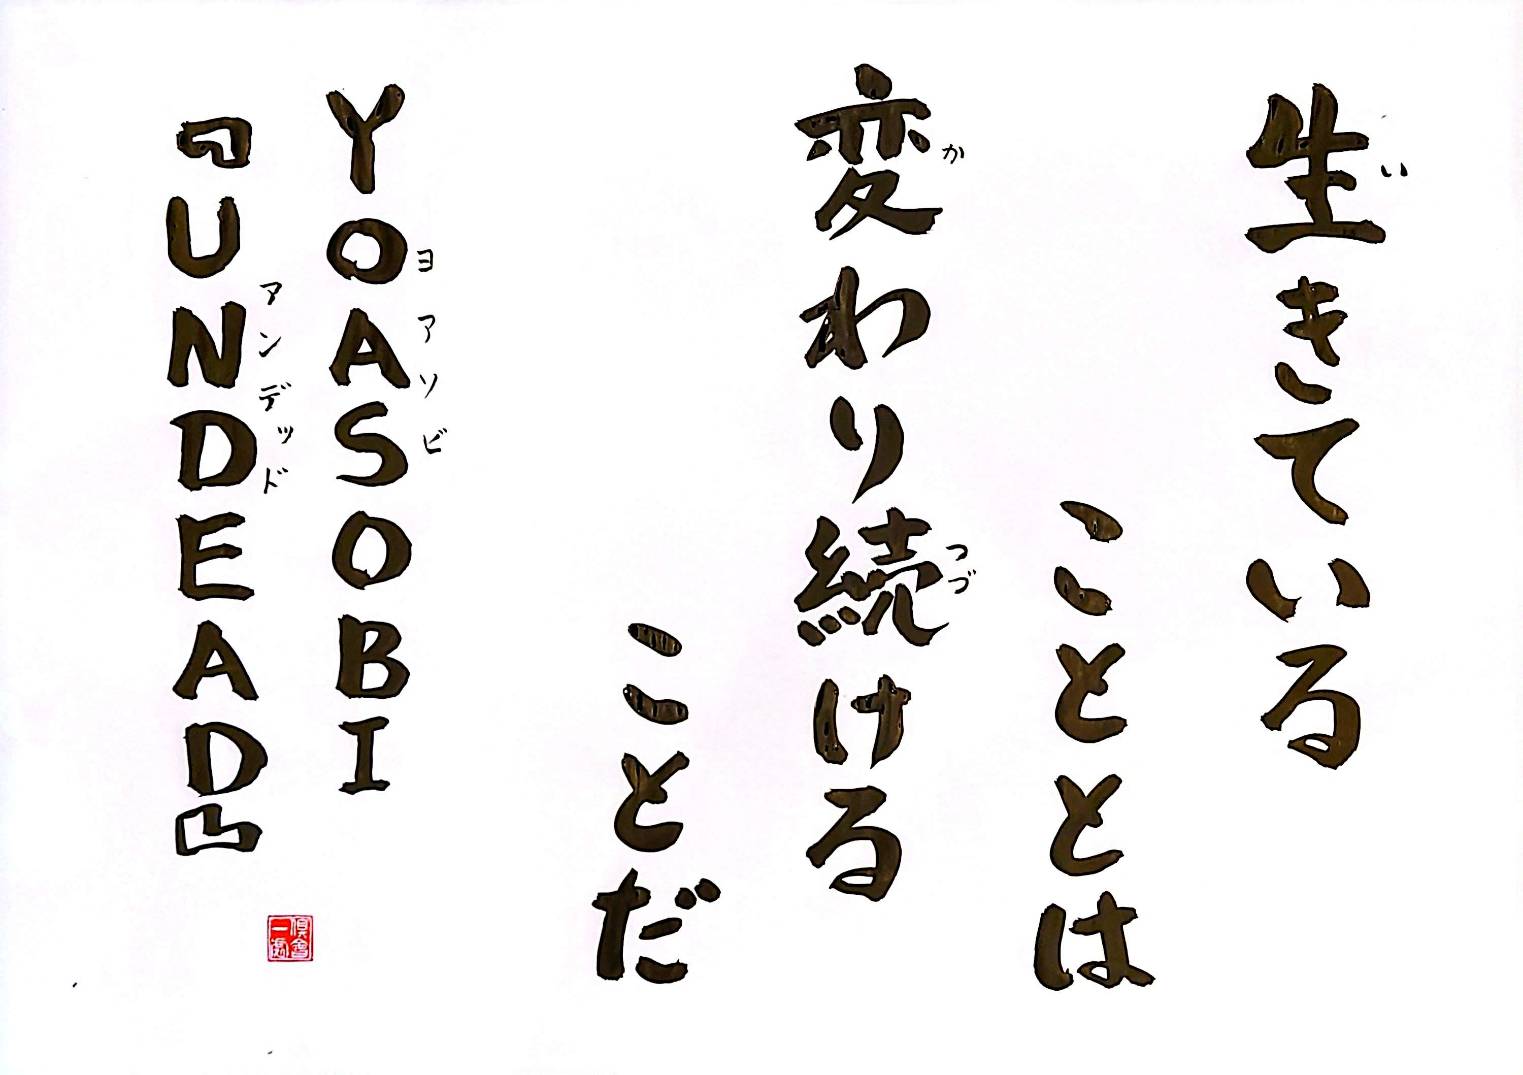 生きている
い
こととは
変わり続ける
か
つづ
ことだ
YOASOBI
ヨアソビ
『UNDEAD』
アンデッド
倶會
一処